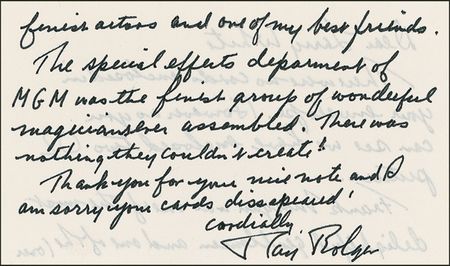 finest actors and one of my best friends.
The special effects deparment of
MGM was the finest group of wonderful
magicians ever assembled. There was
nothing they couldn't create!
Thank you for your nice note and I
am sorry your cards dissapeared!
Cordially
Ray Bolger